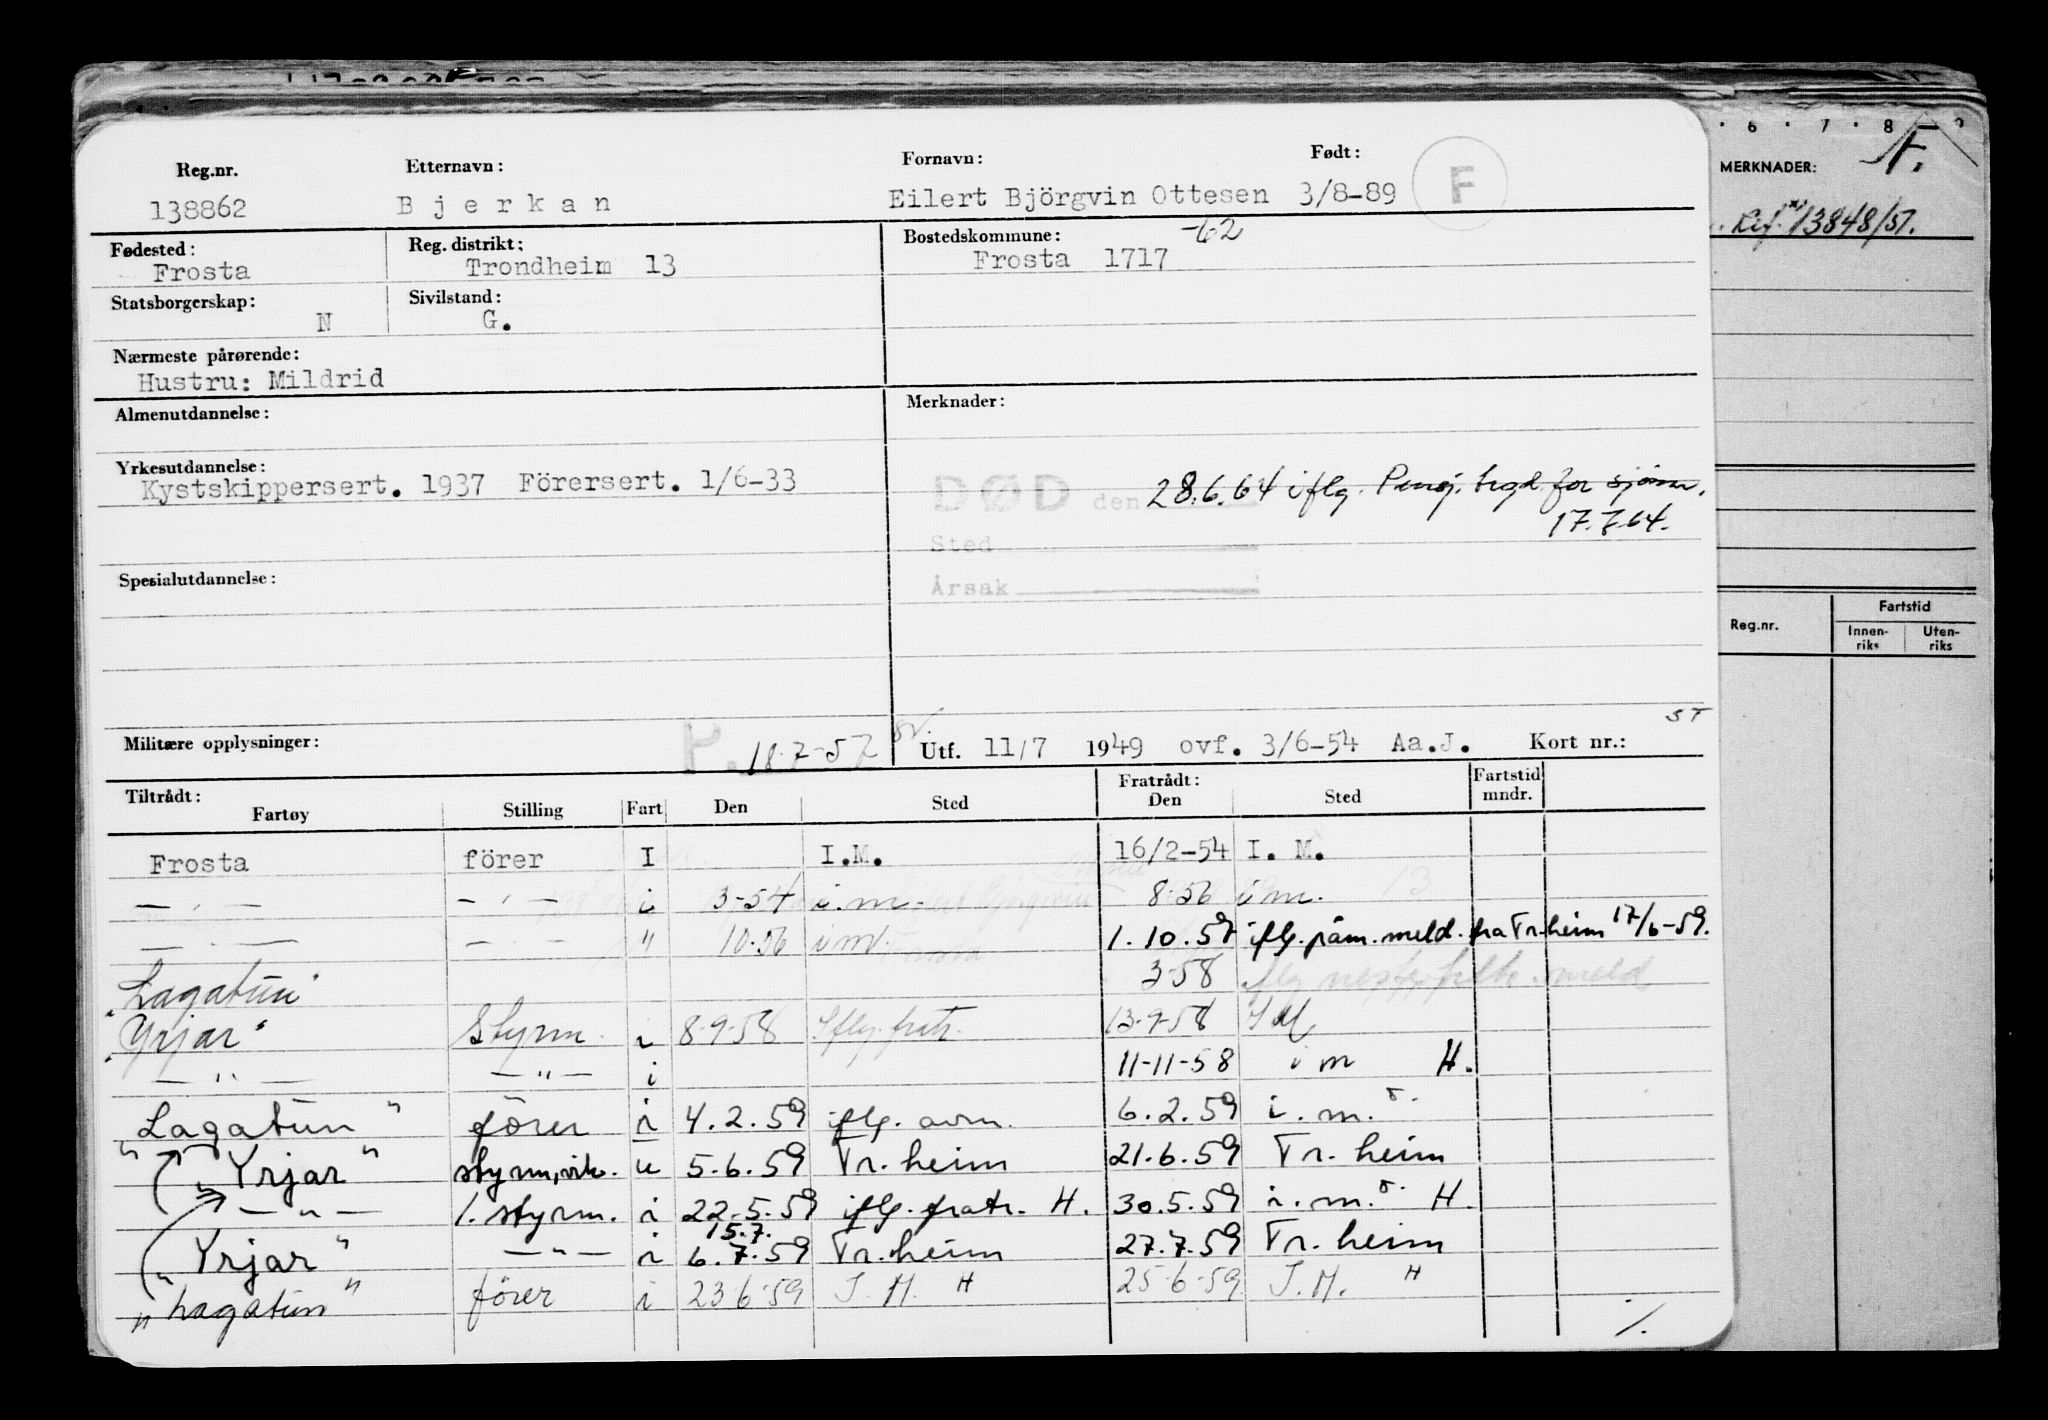 Reg.nr. Etternavn: Fornavn: Født:
138862 Bjerkan Eilert Björgvin Ottesen 3/8-89 F
Fødested: Reg. distrikt: Bostedskommune: -62
Frosta Trondheim 13 Frosta 1717
Statsborgerskap: Sivilstand:
N G.
Nærmeste pårørende:
Hustru: Mildrid
Almenutdannelse: Merknader:
Yrkesutdannelse:
Kystskippersert. 1937 Förersert. 1/6-33
DØD den 28.6.64 iflg. Pensj. trgd. for sjöm.
17.7.64.
Sted
Årsak
Spesialutdannelse:
ST
Militære opplysninger: P. 18.7-57 Utf. 11/7 1949 ovf. 3/6-54 Aa.J. Kort nr.:
Tiltrådt: Fratrådt: Fartstid
Fartøy Stilling Fart Den Sted Den Sted mndr.
Frosta förer I I.M. 16/2-54 I. M.
— " — — " — i 3-54 i.m. 8.56 i m.
— " — — " — " 10.56 i m. 1.10.57 iflg. påm. meld. fra Tr.heim 17/6-59.
"Lagatun" 3-58 meld
"Yrjar" Styrm. i 8-9-58 Iflg. fratr. 13-9-58 I M
— " — — " — i 11-11-58 i m H.
"Lagatun" förer i 4.2.59 iflg. avm. 6.2.59 i.m.
"Yrjar" styrm. vik. u 5.6.59 Tr. heim 21.6.59 Tr. heim
— " — 1. styrm. i 22.5.59 iflg. fratr. H. 30.5.59 i.m. H.
15.7.
"Yrjar" — " — i 6.7.59 Tr. heim 27.7.59 Tr. heim
"Lagatun" förer i 23.6.59 I.M. H 25.6.59 I.M. H
%
6 7 8 9
MERKNADER: F.
13848/51.
Reg.nr. Fartstid
Innen-riks Uten-riks